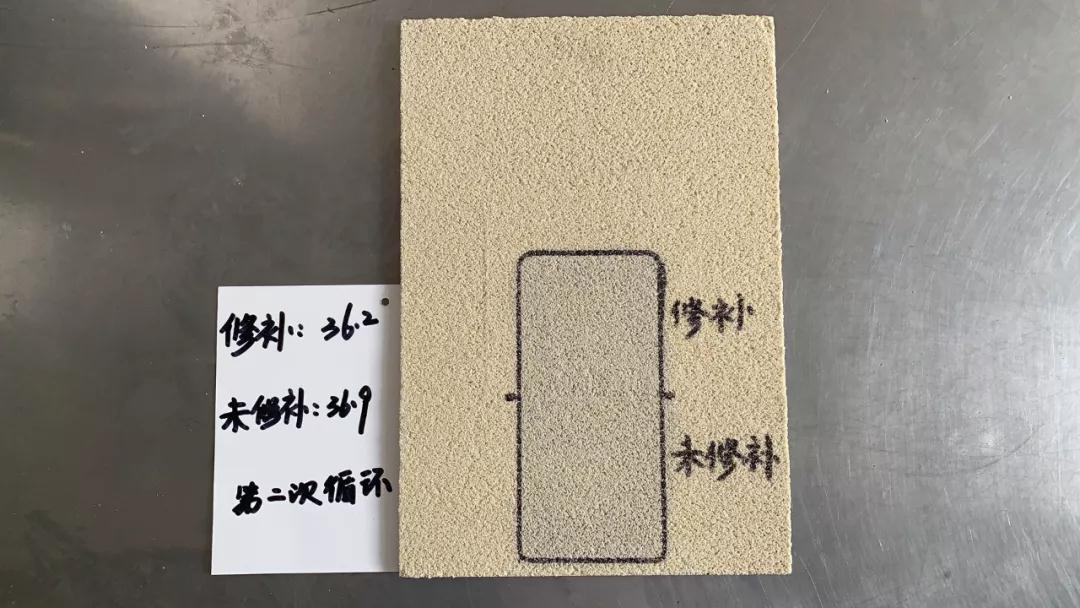 修补: 36.2
未修补: 36.9
第二次循环
修补
未修补